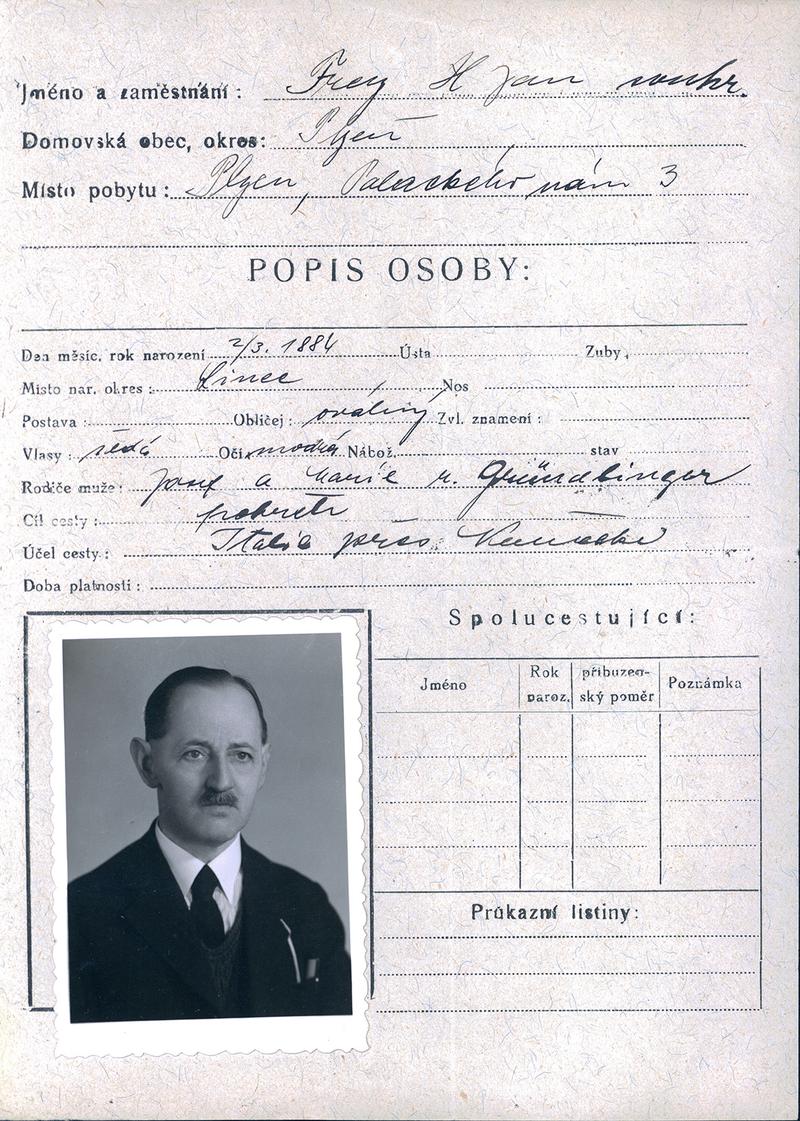 Jméno a zaměstnání : Frey H Jan soukr.
Domovská obec, okres: Plzeň
Místo pobytu : Plzen, Palackého nám 3
POPIS OSOBY:
Den měsíc, rok narození 2/3. 1884 Ústa Zuby
Místo nar. okres : Linec Nos
Postava : Obličej : oválný Zvl. znamení :
Vlasy : šedé Oči modré Nábož. stav
Rodiče muže : Josef a Marie r. Gründlinger
Cíl cesty :
Účel cesty : Italie přes Německo
Doba platnosti :
Spolucestující:
Jméno Rok naroz. příbuzen-ský poměr Poznámka
Průkazní listiny: